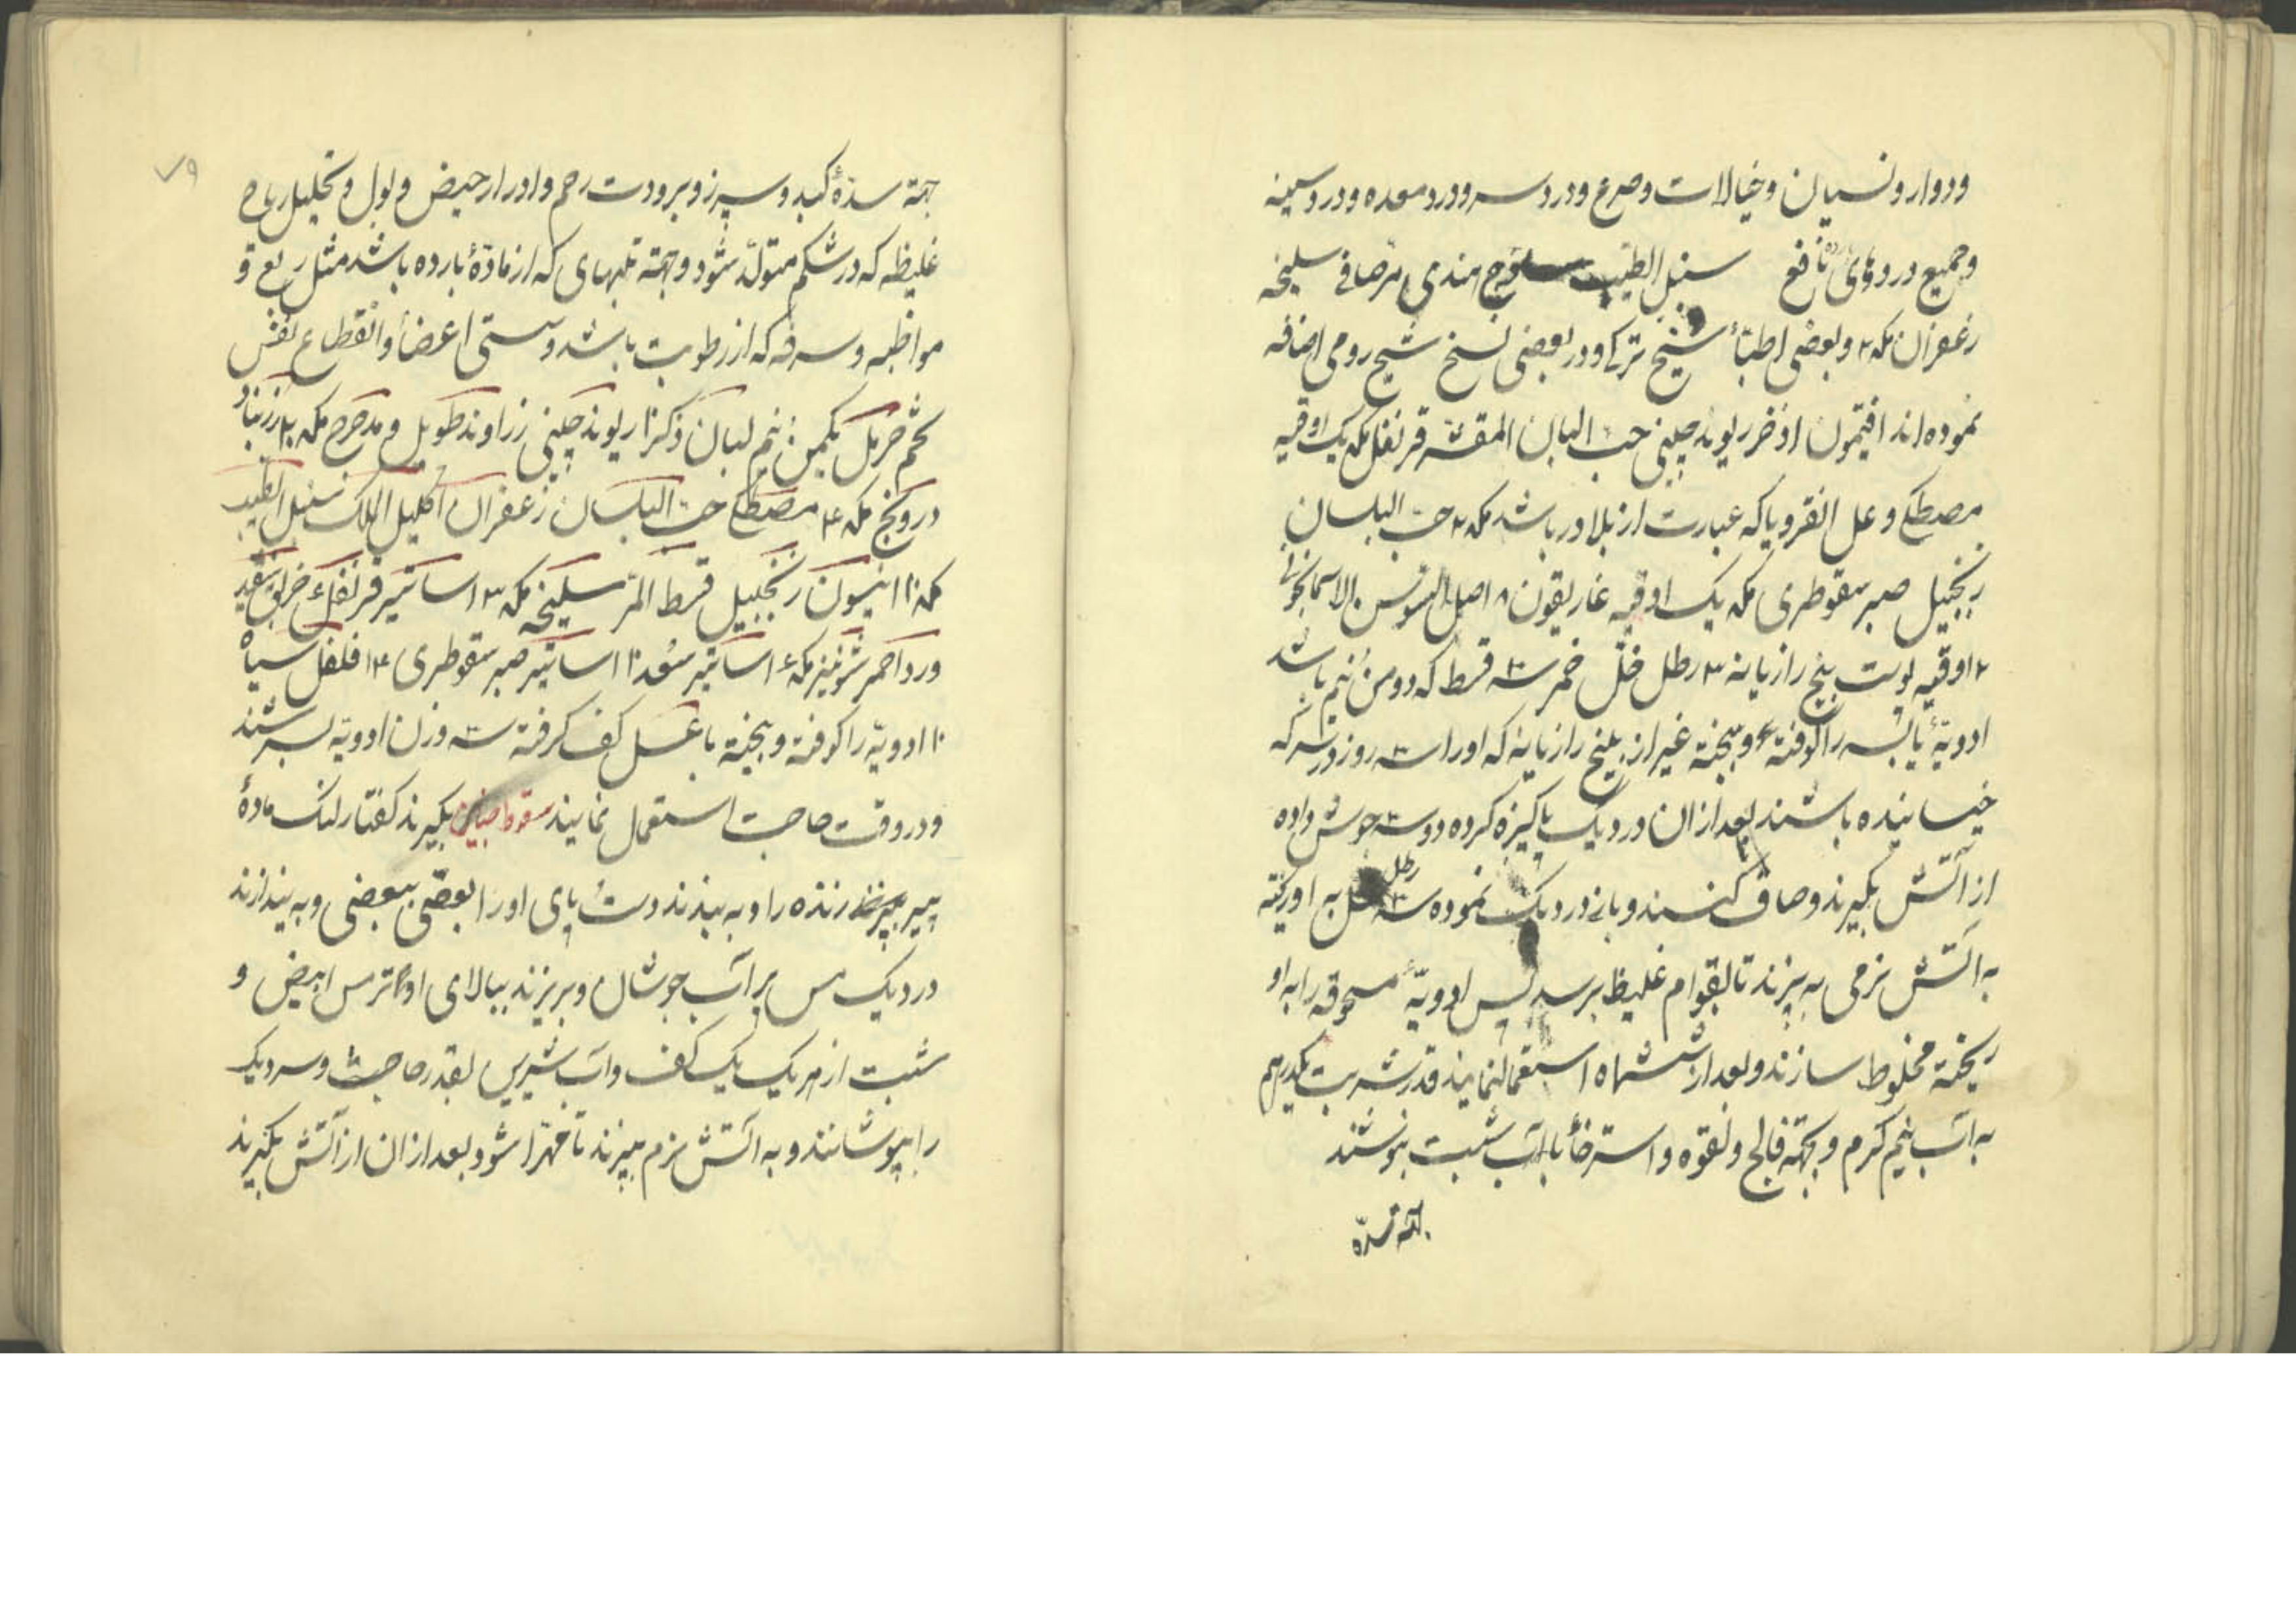 ودوار و نسیان و خیالات و صرع و درد سر و درد معده و درد سینه
و جمیع دردهای نافع سنبل الطیب هندی مر صافی سلیخه
زعفران مکد ۲ و بعضی اطبّاء شیح ترکی و در بعضی نسخ شیح رومی اضافه
نموده اند افتیمون اذخر ریوند چینی حب البان المقشر قرنفل مکد یک اوقیه
مصطکی و عسل انقرویا که عبارت از بلادر باشد مکد ۲ حبّ البلسان
زنجبیل صبر سقوطری مکد یک اوقیه غاریقون ۸ اصل السوسن الاسمانجونی
۲ اوقیه پوست بیخ رازیانه ۳ رطل خلّ خمر سه قسط که دو من نیم باشد
ادویهٔ یابسه را کوفته و بیخته غیر از بیخ رازیانه که او را سه روز در سرکه
خیسانیده باشند بعد از ان در دیک پاکیزه کرده دو سه جوش داده
از آتش بکیرند و صاف کنند و باز در دیک نموده سه رطل عسل به او ریخته
به آتش نرمی به پزند تا بقوام غلیظ برسد پس ادویهٔ مسحوقه را به او
ریخته مخلوط سازند و بعد از ششماه استعمال نمایند قدر شربت یکدرهم
به آب نیم کرم و بجهة فالج و لقوه و استرخأ با آب شبت بنوشند
بجهة سدّهٔ
۷۹
جهة سدّهٔ کبد و سپرز و برودت رحم و ادرار حیض و بول و تحلیل ریاح
غلیظه که در شکم متولّد شود و جهة تبهای که از مادّهٔ بارده باشد مثل ربع و
مواظبه و سرفه که از رطوبت باشد و سستی اعضأ و انقطاع نفس
تخم حرمل یکمن نیم لبان ذکر ۱۰ ریوند چینی زراوند طویل و مدحرج مکد زرنباد
درونج مکد ۴ مصطکی حبّ البلسان زعفران اکلیل الملک سنبل الطیب
مکد ۱۰ انیسون زنجبیل قسط المرّ سلیخه مکد ۳ اساتیر قرنفل ۴ خربق سفید
ورد احمر شونیز مکد ۴ اساتیر سعد ۱۰ اساتیر صبر سقوطری ۱۴ فلفل سیاه
۱۰ ادویّه را کوفته و بیخته با عسل کف کرفته سه وزن ادویّه بسرشند
و در وقت حاجت استعمال نمایند بکیرند کفتار لنک مادهٔ
پیر زنده را و به بندند دست پای او را بعضی ببعضی و به بیندازند
در دیک مس پر آب جوشان و بریزند ببالای او ترمس ابیض و
شبت از هر یک یک کف و آب شیرین بقدر حاجت و سر دیک
را بپوشانند و به آتش نرم بپزند تا مهرّا شود بعد از ان از آتش بکیرند